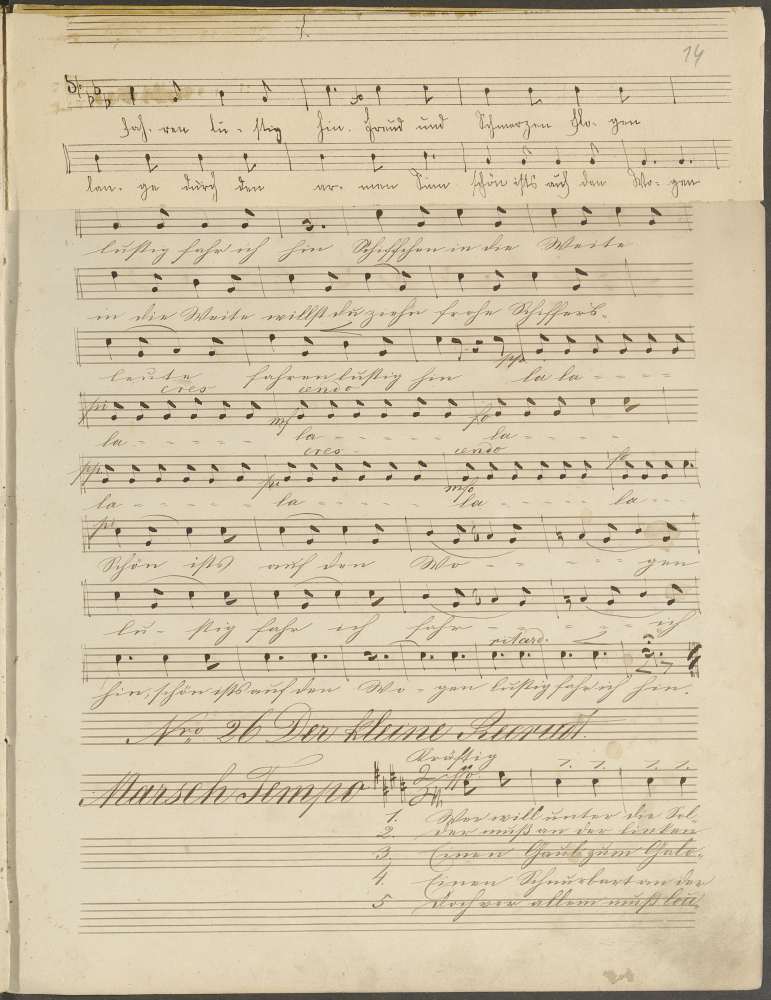 14
fah- ren lu- stig hin. Freud und Schmerzen flo- gen
lan- ge durch den ar- men Sinn schön ists auf den Wo- gen
lustig fahr ich hin Schiffchen in die Weite
in die Weite willst du ziehn frohe Schiffers-
leute fahren lustig hin la la - - - -
cres cendo
la - - - - - la - - - - - la - - - -
cres - cendo
la - - - - - la - - - - - la - - - - - la - - -
Schön ists auf den Wo - - - - - - gen
lu- stig fahr ich fahr - - - - - - ich
ritard.
hin, schön ists auf den Wo - gen lustig fahr ich hin.
Nro 26 Der kleine Recrut.
Kräftig
Marsch Tempo
1. Wer will unter die Sol-
2. Der muß an der linken
3. Einen Gaul zum Galo-
4. Einen Schnurbart an der
5 Doch vor allem muß